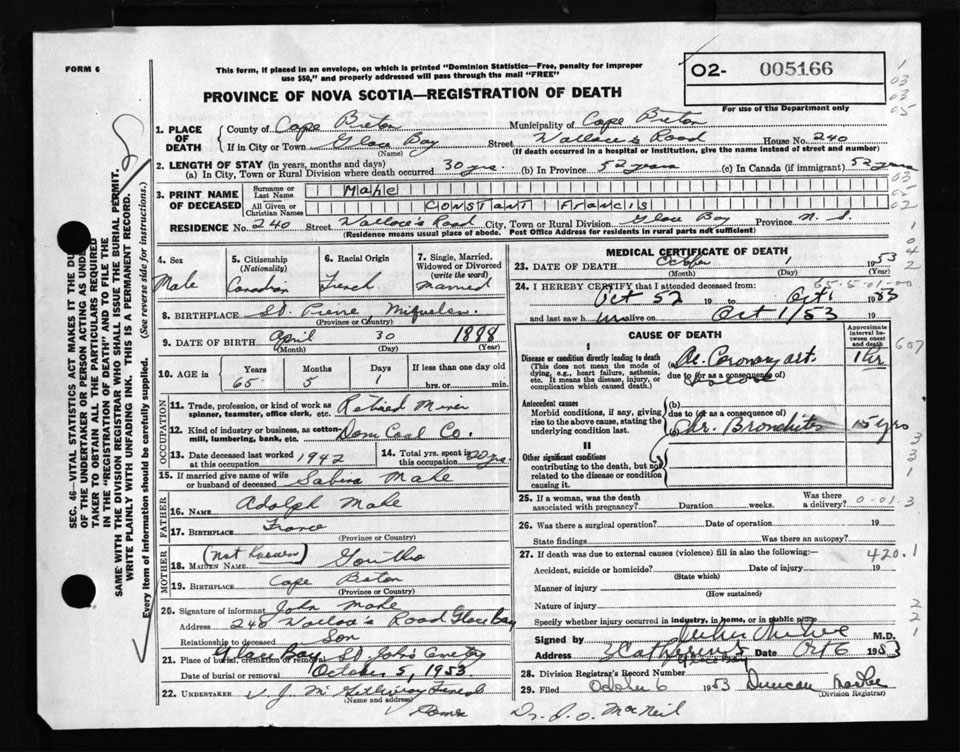 FORM 6
This form, if placed in an envelope, on which is printed "Dominion Statistics—Free, penalty for improper
use $50," and properly addressed will pass through the mail "FREE"
02- 005166
PROVINCE OF NOVA SCOTIA—REGISTRATION OF DEATH
For use of the Department only
1. PLACE OF DEATH
County of Cape Breton Municipality of Cape Breton
If in City or Town Glace Bay Street Wallace's Road House No. 240
(Name) (If death occurred in a hospital or institution, give the name instead of street and number)
2. LENGTH OF STAY (in years, months and days)
(a) In City, Town or Rural Division where death occurred 30 yrs. (b) In Province 52 years (c) In Canada (if immigrant) 52 years
3. PRINT NAME OF DECEASED
Surname or Last Name Mahe
All Given or Christian Names Constant Francis
RESIDENCE No. 240 Wallace's Road City, Town or Rural Division Glace Bay Province N. S.
(Residence means usual place of abode. Post Office Address for residents in rural parts not sufficient)
4. Sex
Male
5. Citizenship
(Nationality)
Canadian
6. Racial Origin
French
7. Single, Married, Widowed or Divorced
(write the word)
Married
8. BIRTHPLACE St. Pierre, Miquelon
(Province or Country)
9. DATE OF BIRTH April 30 1888
(Month) (Day) (Year)
10. AGE in Years Months Days If less than one day old
65 5 1 hrs. or min.
OCCUPATION
11. Trade, profession, or kind of work as
spinner, teamster, office clerk, etc. Retired Miner
12. Kind of industry or business, as cotton-
mill, lumbering, bank, etc. Dom Coal Co.
13. Date deceased last worked at this occupation 1942
14. Total yrs. spent in this occupation 20 yrs.
15. If married give name of wife
or husband of deceased Sabina Mahe
FATHER
16. NAME Adolph Mahe
17. BIRTHPLACE France
(Province or Country)
MOTHER
18. MAIDEN NAME (Not Known)
19. BIRTHPLACE Cape Breton
(Province or Country)
20. Signature of informant John Mahe
Address 240 Wallace's Road Glace Bay
Relationship to deceased Son
Glace Bay St. John's Cemetery
21. Place of burial, cremation or removal
Date of burial or removal October 5, 1953
22. UNDERTAKER V. J. McGillivray Funeral
Home
(Name and address)
MEDICAL CERTIFICATE OF DEATH
23. DATE OF DEATH October 1 1953
(Month) (Year)
24. I HEREBY CERTIFY that I attended deceased from: 65-5-01-00
Oct 52 19 to Oct 1 1953
and last saw h im alive on Oct 1/53 19
CAUSE OF DEATH
Approximate interval between onset and death
I
Disease or condition directly leading to death
(This does not mean the mode of dying, e.g., heart failure, asthenia, etc. It means the disease, injury, or complication which caused death.)
(a) Ac. Coronary art. 1 hr 607
due to (or as a consequence of)
Antecedent causes
Morbid conditions, if any, giving rise to the above cause, stating the underlying condition last.
(b)
due to (or as a consequence of)
(c) Chr. Bronchitis 15 yrs
II
Other significant conditions
contributing to the death, but not related to the disease or condition causing it.
25. If a woman, was the death associated with pregnancy? Duration weeks. Was there a delivery? 0-01-3
26. Was there a surgical operation? Date of operation 19
State findings Was there an autopsy?
27. If death was due to external causes (violence) fill in also the following: 420.1
Accident, suicide or homicide? Date of injury 19
(State which)
Manner of injury
(How sustained)
Nature of injury
Specify whether injury occurred in industry, in home, or in public place
Signed by M.D.
Address Catherine St Date Oct 6 1953
Glace Bay
28. Division Registrar's Record Number
29. Filed October 6 1953 Duncan
(Division Registrar)
Dr. J. O. MacNeil
SEC. 46—VITAL STATISTICS ACT MAKES IT THE DUTY
OF THE UNDERTAKER OR PERSON ACTING AS UNDER-
TAKER TO OBTAIN ALL THE PARTICULARS REQUIRED
IN THE "REGISTRATION OF DEATH" AND TO FILE THE
SAME WITH THE DIVISION REGISTRAR WHO SHALL ISSUE THE BURIAL PERMIT.
WRITE PLAINLY WITH UNFADING INK. THIS IS A PERMANENT RECORD.
Every item of information should be carefully supplied. (See reverse side for instructions.)